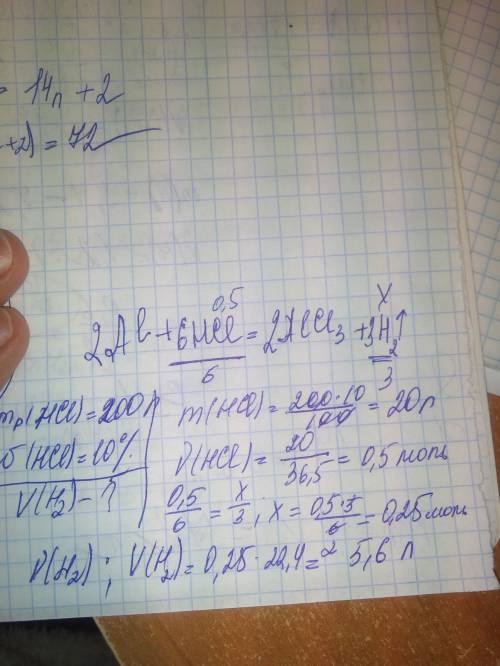 = 14n + 2
+2) = 72
0,5 x
2Al + 6HCl = 2AlCl3 + 3H2↑
6 3
mр(HCl) = 200г
ω(HCl) = 10%
V(H2) - ?
m(HCl) = 200·10/100 = 20г
ν(HCl) = 20/36,5 = 0,5 моль
0,5/6 = x/3 ; x = 0,5·3/6 = 0,25 моль
2
ν(H2) ; V(H2) = 0,25·22,4 = 5,6 л